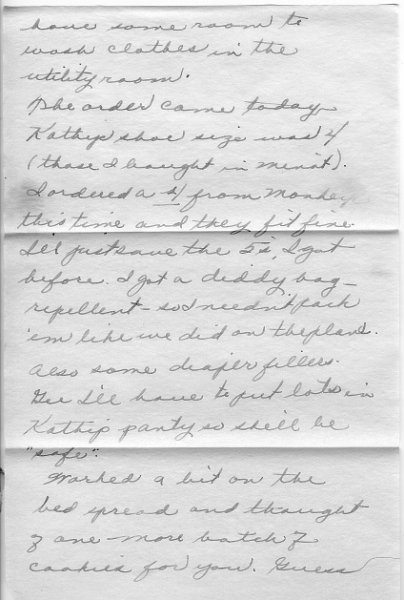 have some room to
wash clothes in the
utility room.
The order came today
Kathip shoe size was 4
(those I bought in Minot).
I ordered a 4 from Monkey
this time and they fit fine.
I'll just save the 5's, I got
before. I got a diddy bag -
repellent - so I needn't pack
'em like we did on the plane.
Also some diaper fillers.
Gee I'll have to put lots in
Kathip panty so she'll be
"safe".
Worked a bit on the
bed spread and thought
of one more batch of
cookies for you. Guess